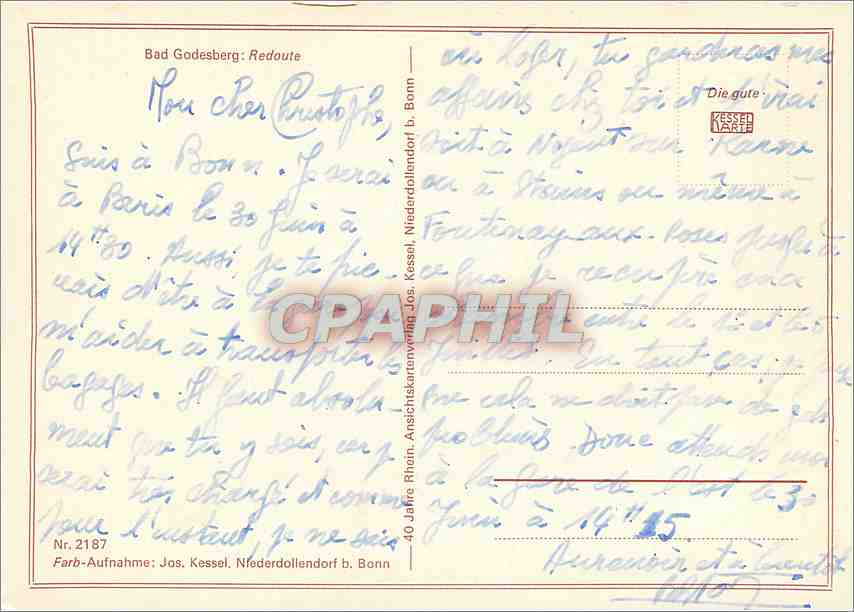 Bad Godesberg: Redoute
Mon cher Christophe,
Suis à Bonn. Je serai
à Paris le 30 Juin à
14H30. Aussi, je te prie-
rais d'être à la
m'aider à transporter les
bagages. Il faut absolu-
ment que tu y sois, car je
serai très chargé et comme
pour l'instant, je ne sais
Nr. 2187
Farb-Aufnahme: Jos. Kessel, Niederdollendorf b. Bonn
40 Jahre Rhein. Ansichtskartenverlag Jos. Kessel, Niederdollendorf b. Bonn
où loger, tu garderas mes
affaires chez toi et j'irai
Die gute
KESSEL KARTE
soit à Nogent sur Marne
ou à Stains ou même à
Fontenay-aux-Roses jusqu'à
ce que je recupère ma
entre le 1er et le 5
Juillet. En tout cas, je
que cela ne doit pas de
problèmes. Donc attends moi
à la Gare de l'Est le 30
Juin à 14H15.
Aurevoir et à bientôt
CPAPHIL